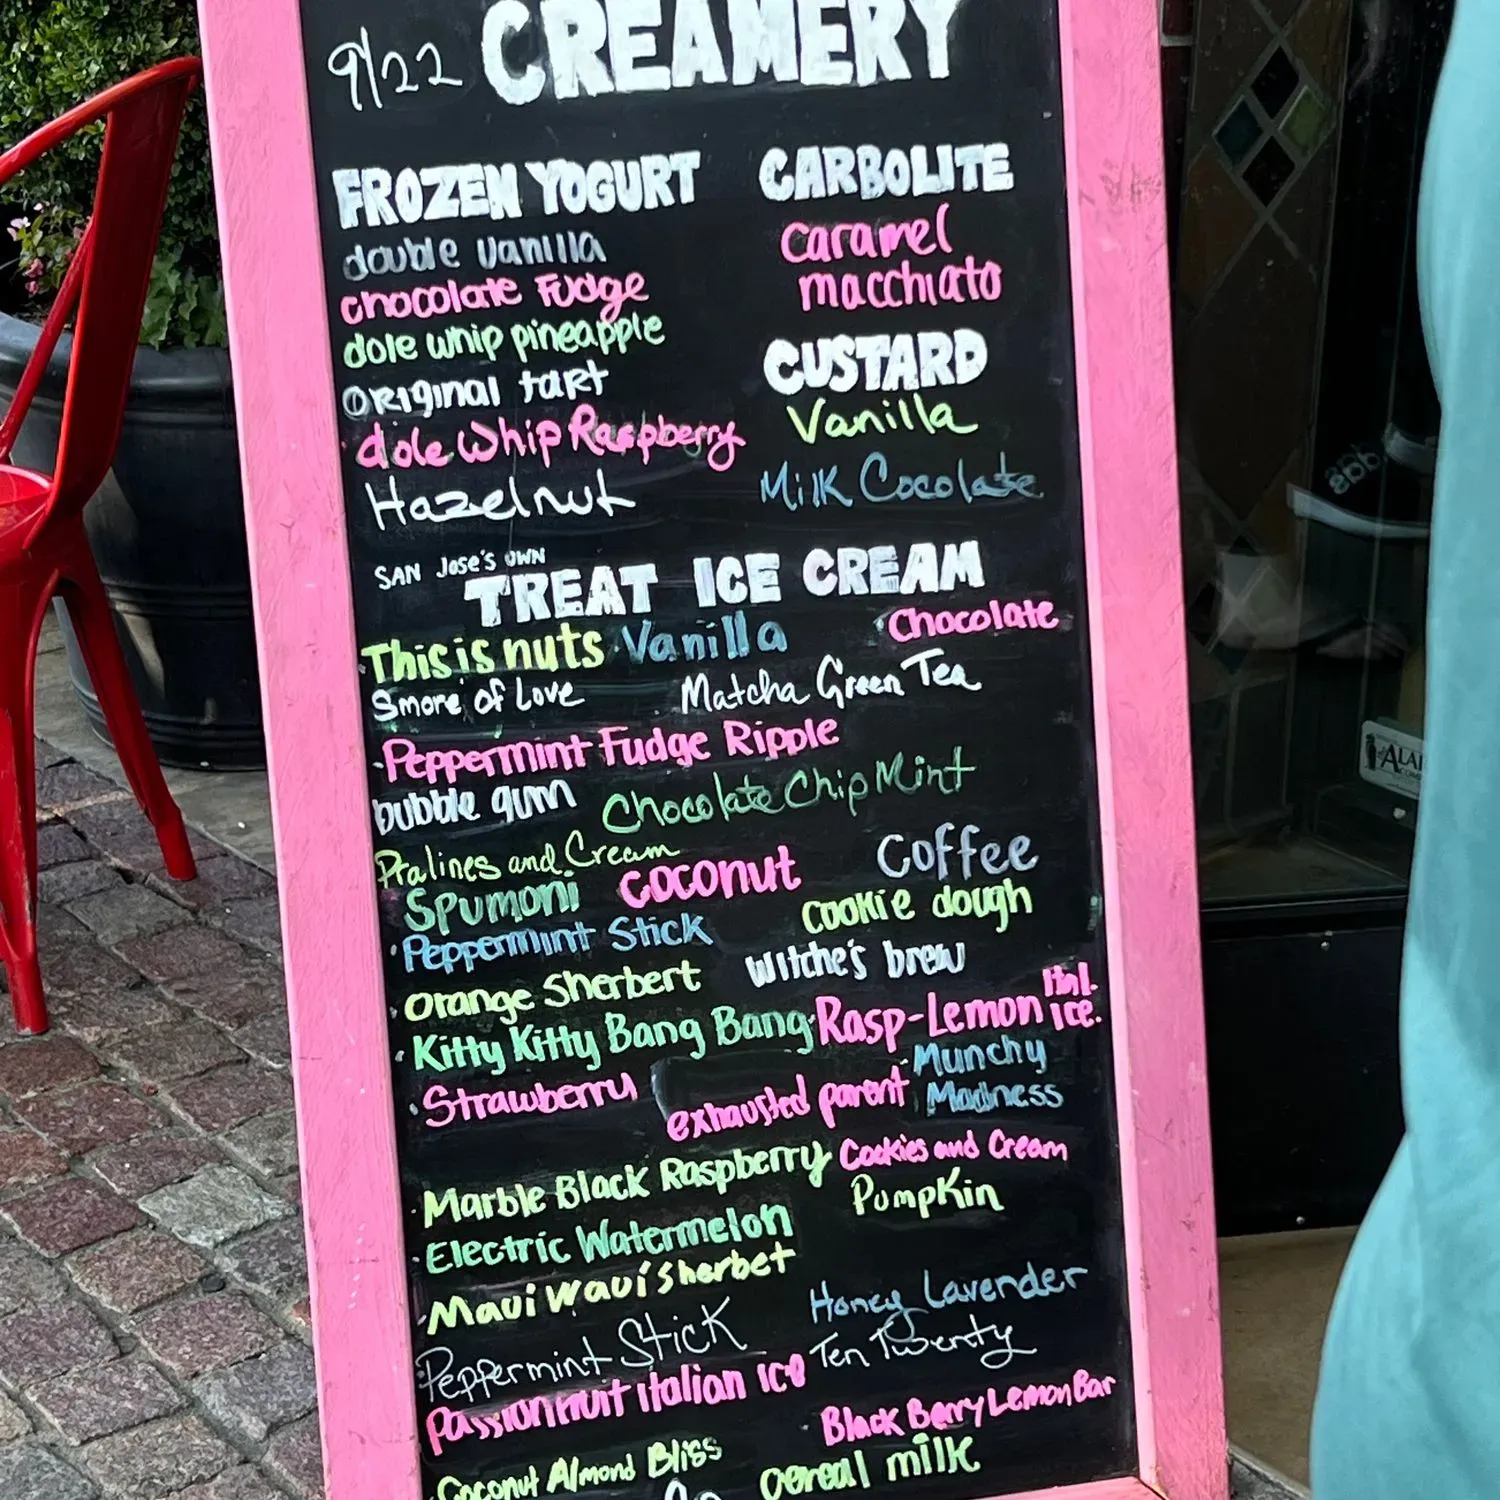 9/22 CREAMERY
FROZEN YOGURT
double vanilla
chocolate Fudge
dole whip pineapple
ORiginal taRt
dole Whip Raspberry
Hazelnut
CARBOLITE
Caramel
macchiato
CUSTARD
Vanilla
Milk Cocolate
SAN Jose's OWN
TREAT ICE CREAM
This is nuts Vanilla Chocolate
Smore of Love Matcha Green Tea
Peppermint Fudge Ripple
bubble gum Chocolate Chip Mint
Pralines and Cream Coffee
Spumoni coconut cookie dough
Peppermint Stick
Orange Sherbert Witche's brew
Kitty Kitty Bang Bang Rasp-Lemon ital. ice.
Strawberry exhausted parent Munchy Madness
Marble Black Raspberry Cookies and Cream
Electric Watermelon Pumpkin
Maui waui Sherbet
Peppermint Stick Honey Lavender
Passionfruit italian ice Ten Twenty
Black Berry Lemon Bar
Coconut Almond Bliss cereal milk
888